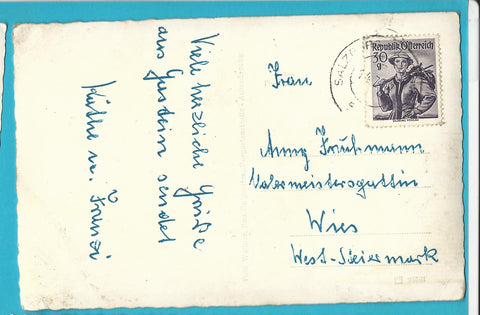 Viele herzliche Grüße
aus Gastein sendet
Käthe u. Franzi
Republik Österreich
30
g
SALZBURG
Frau
Anny Fruhmann
Malermeistersgattin
Wies
West-Steiermark